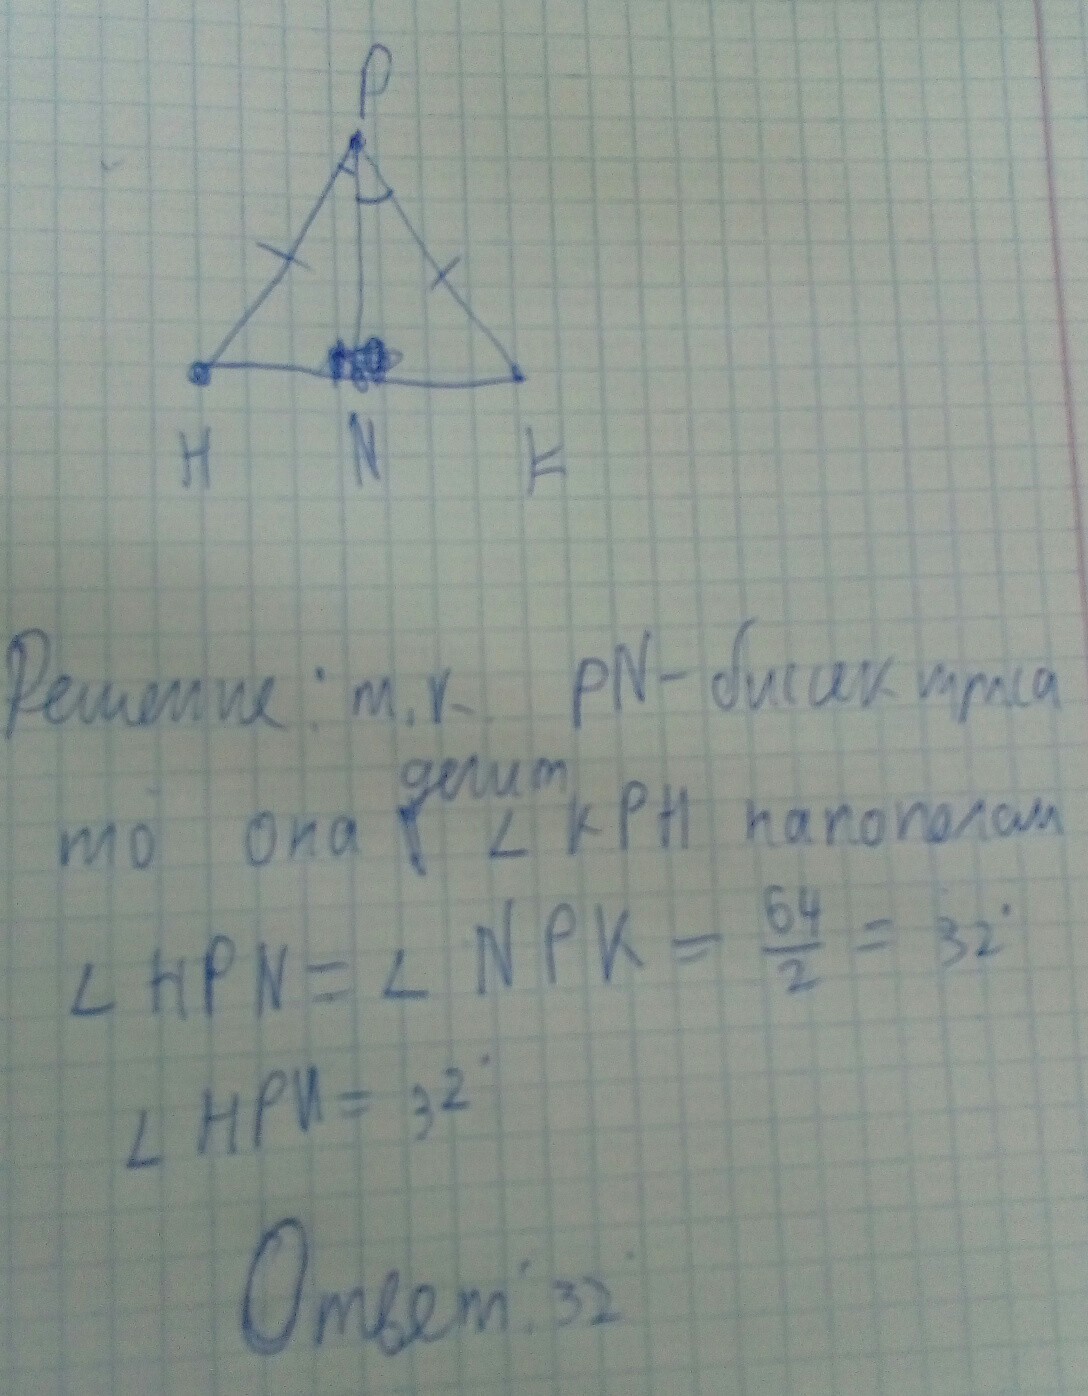 P
H N K
Решение: т.к. PN - биссектриса
то она делит ∠ KPH напополам
∠ HPN = ∠ NPK = 64/2 = 32°
∠ HPN = 32°
Ответ: 32°